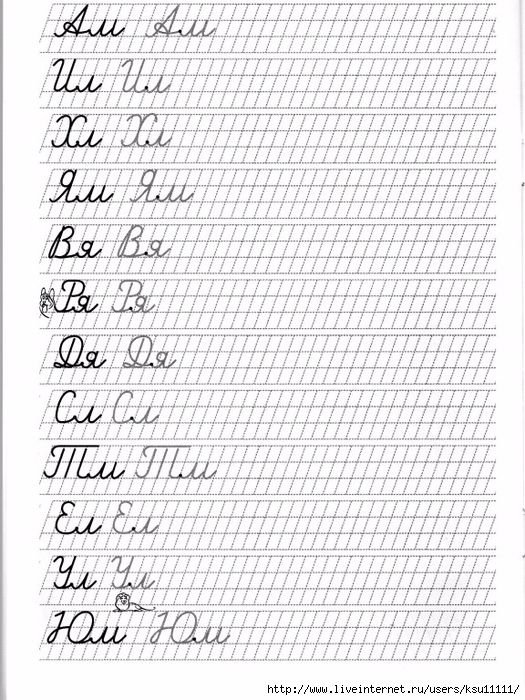 Ам Ам
Ил Ил
Хл Хл
Ям Ям
Вя Вя
Ря Ря
Дя Дя
Сл Сл
Тм Тм
Ел Ел
Ул Ул
Юм Юм
http://www.liveinternet.ru/users/ksu11111/